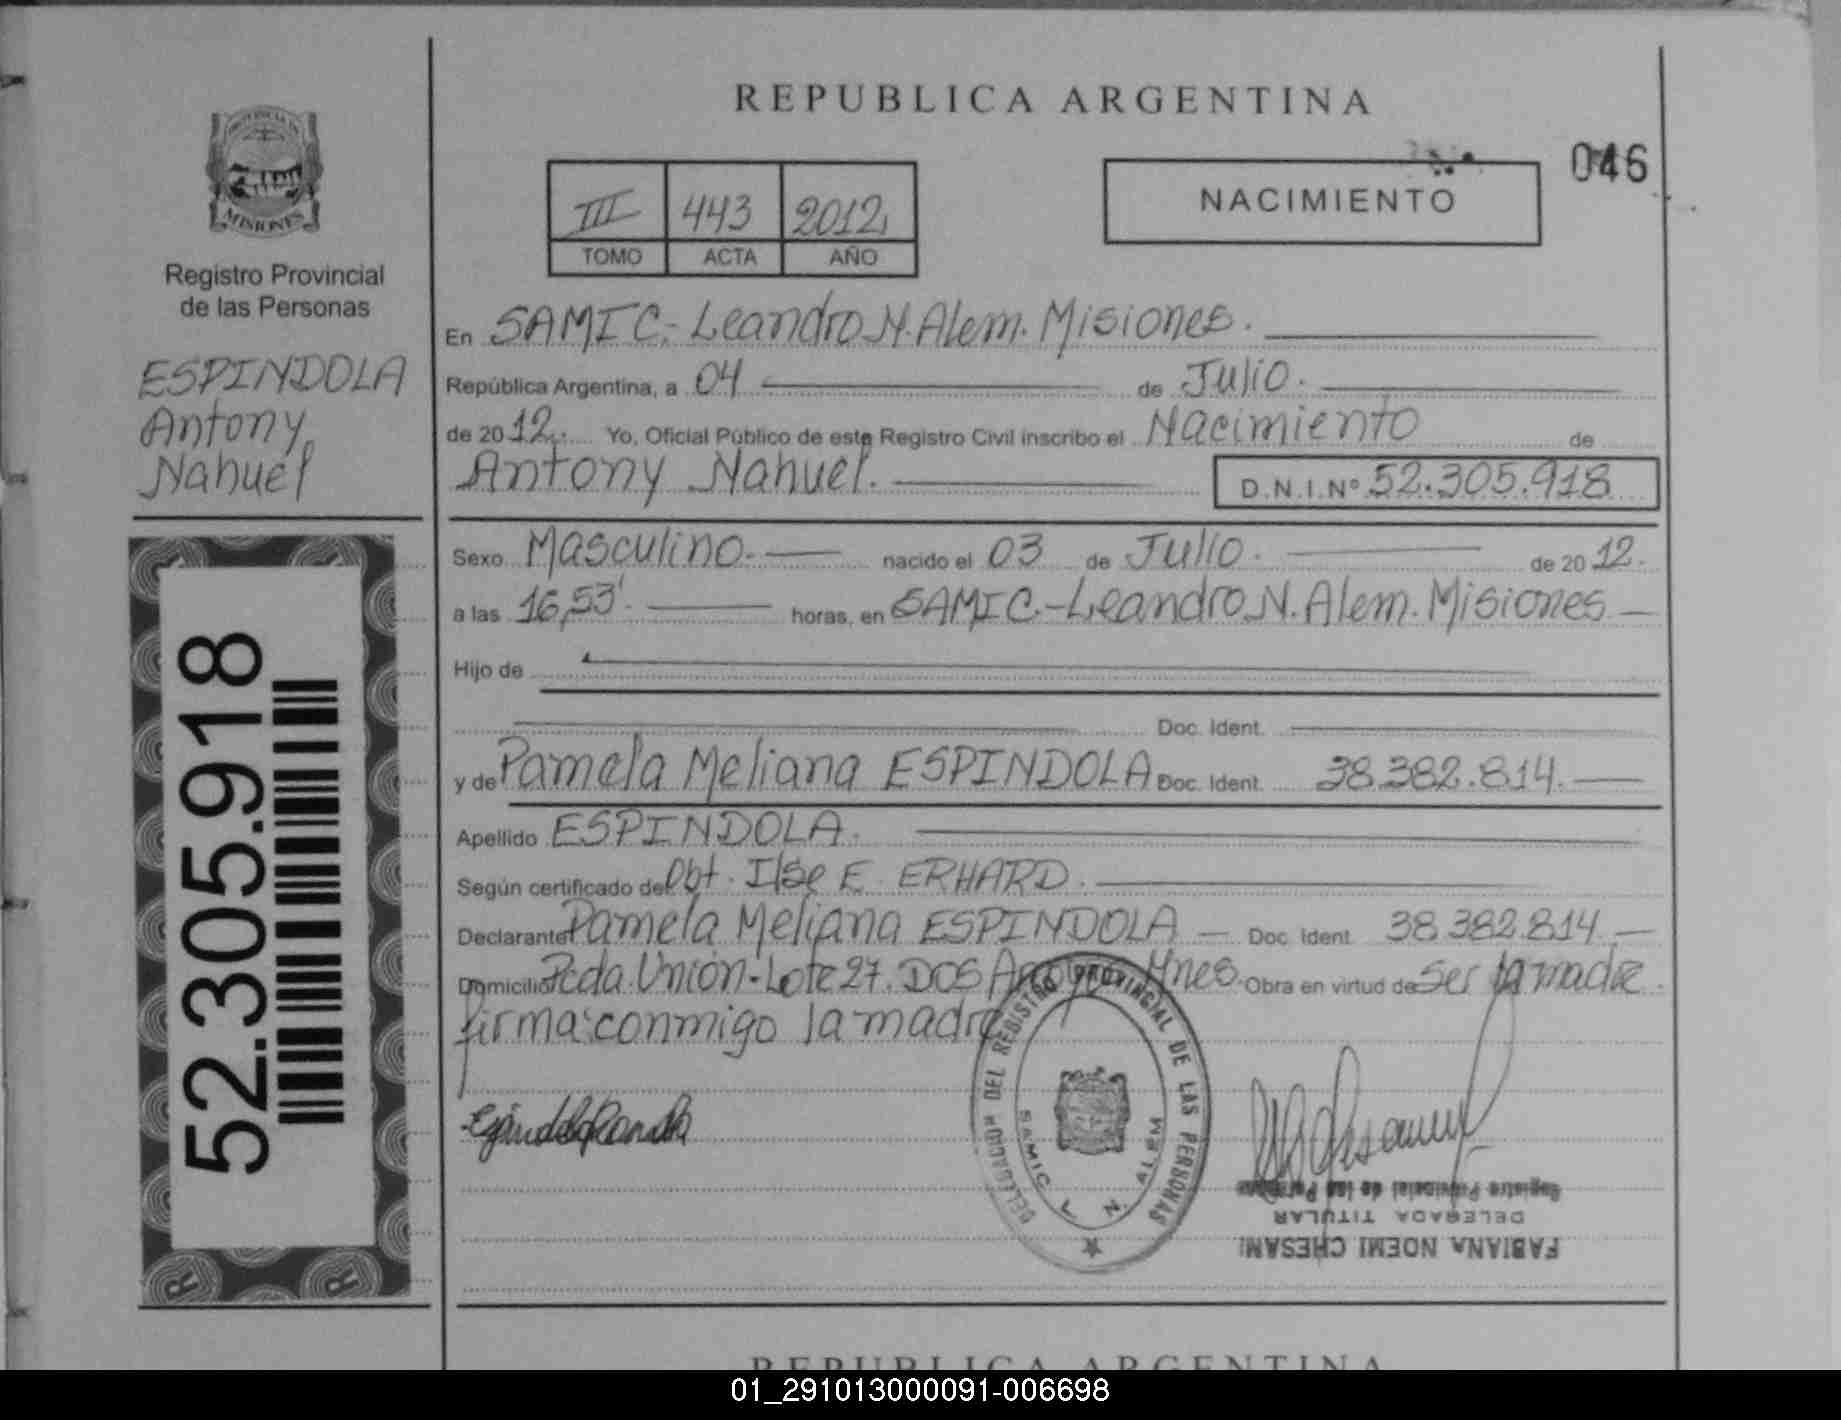 REPUBLICA ARGENTINA
PROVINCIA DE
MISIONES
Registro Provincial
de las Personas
ESPINDOLA
Antony
Nahuel
52.305.918
R R
III 443 2012
TOMO ACTA AÑO
NACIMIENTO
046
En SAMIC.- Leandro N. Alem. Misiones.
República Argentina, a 04 de Julio.
de 20 12. Yo, Oficial Público de este Registro Civil inscribo el Nacimiento de
Antony Nahuel. D.N.I.Nº 52.305.918
Sexo Masculino. nacido el 03 de Julio. de 20 12.
a las 16,53'. horas, en SAMIC.-Leandro N. Alem. Misiones
Hijo de
Doc. Ident.
y de Pamela Meliana ESPINDOLA Doc. Ident. 38.382.814.
Apellido ESPINDOLA.
Según certificado de Obt. Ilse E. ERHARD.
Declarante Pamela Meliana ESPINDOLA Doc. Ident. 38.382.814.
Domicilio Pcda. Unión-Lote 27. DOS Arroyos Mnes. Obra en virtud de Ser la madre.
firma conmigo la madre
DELEGACION DEL REGISTRO PROVINCIAL DE LAS PERSONAS
SAMIC L. N. ALEM
Registro Provincial de las Personas
DELEGADA TITULAR
FABIANA NOEMI CHESANI
REPUBLICA ARGENTINA
01_291013000091-006698